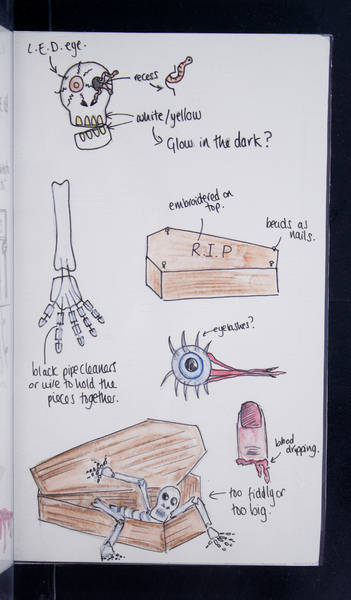 L.E.D. eye.
recess
white/yellow
Glow in the dark?
embroidered on
top.
beads as
nails.
R.I.P
eyelashes?
black pipecleaners
or wire to hold the
pieces together.
blood
dripping.
too fiddly or
too big.